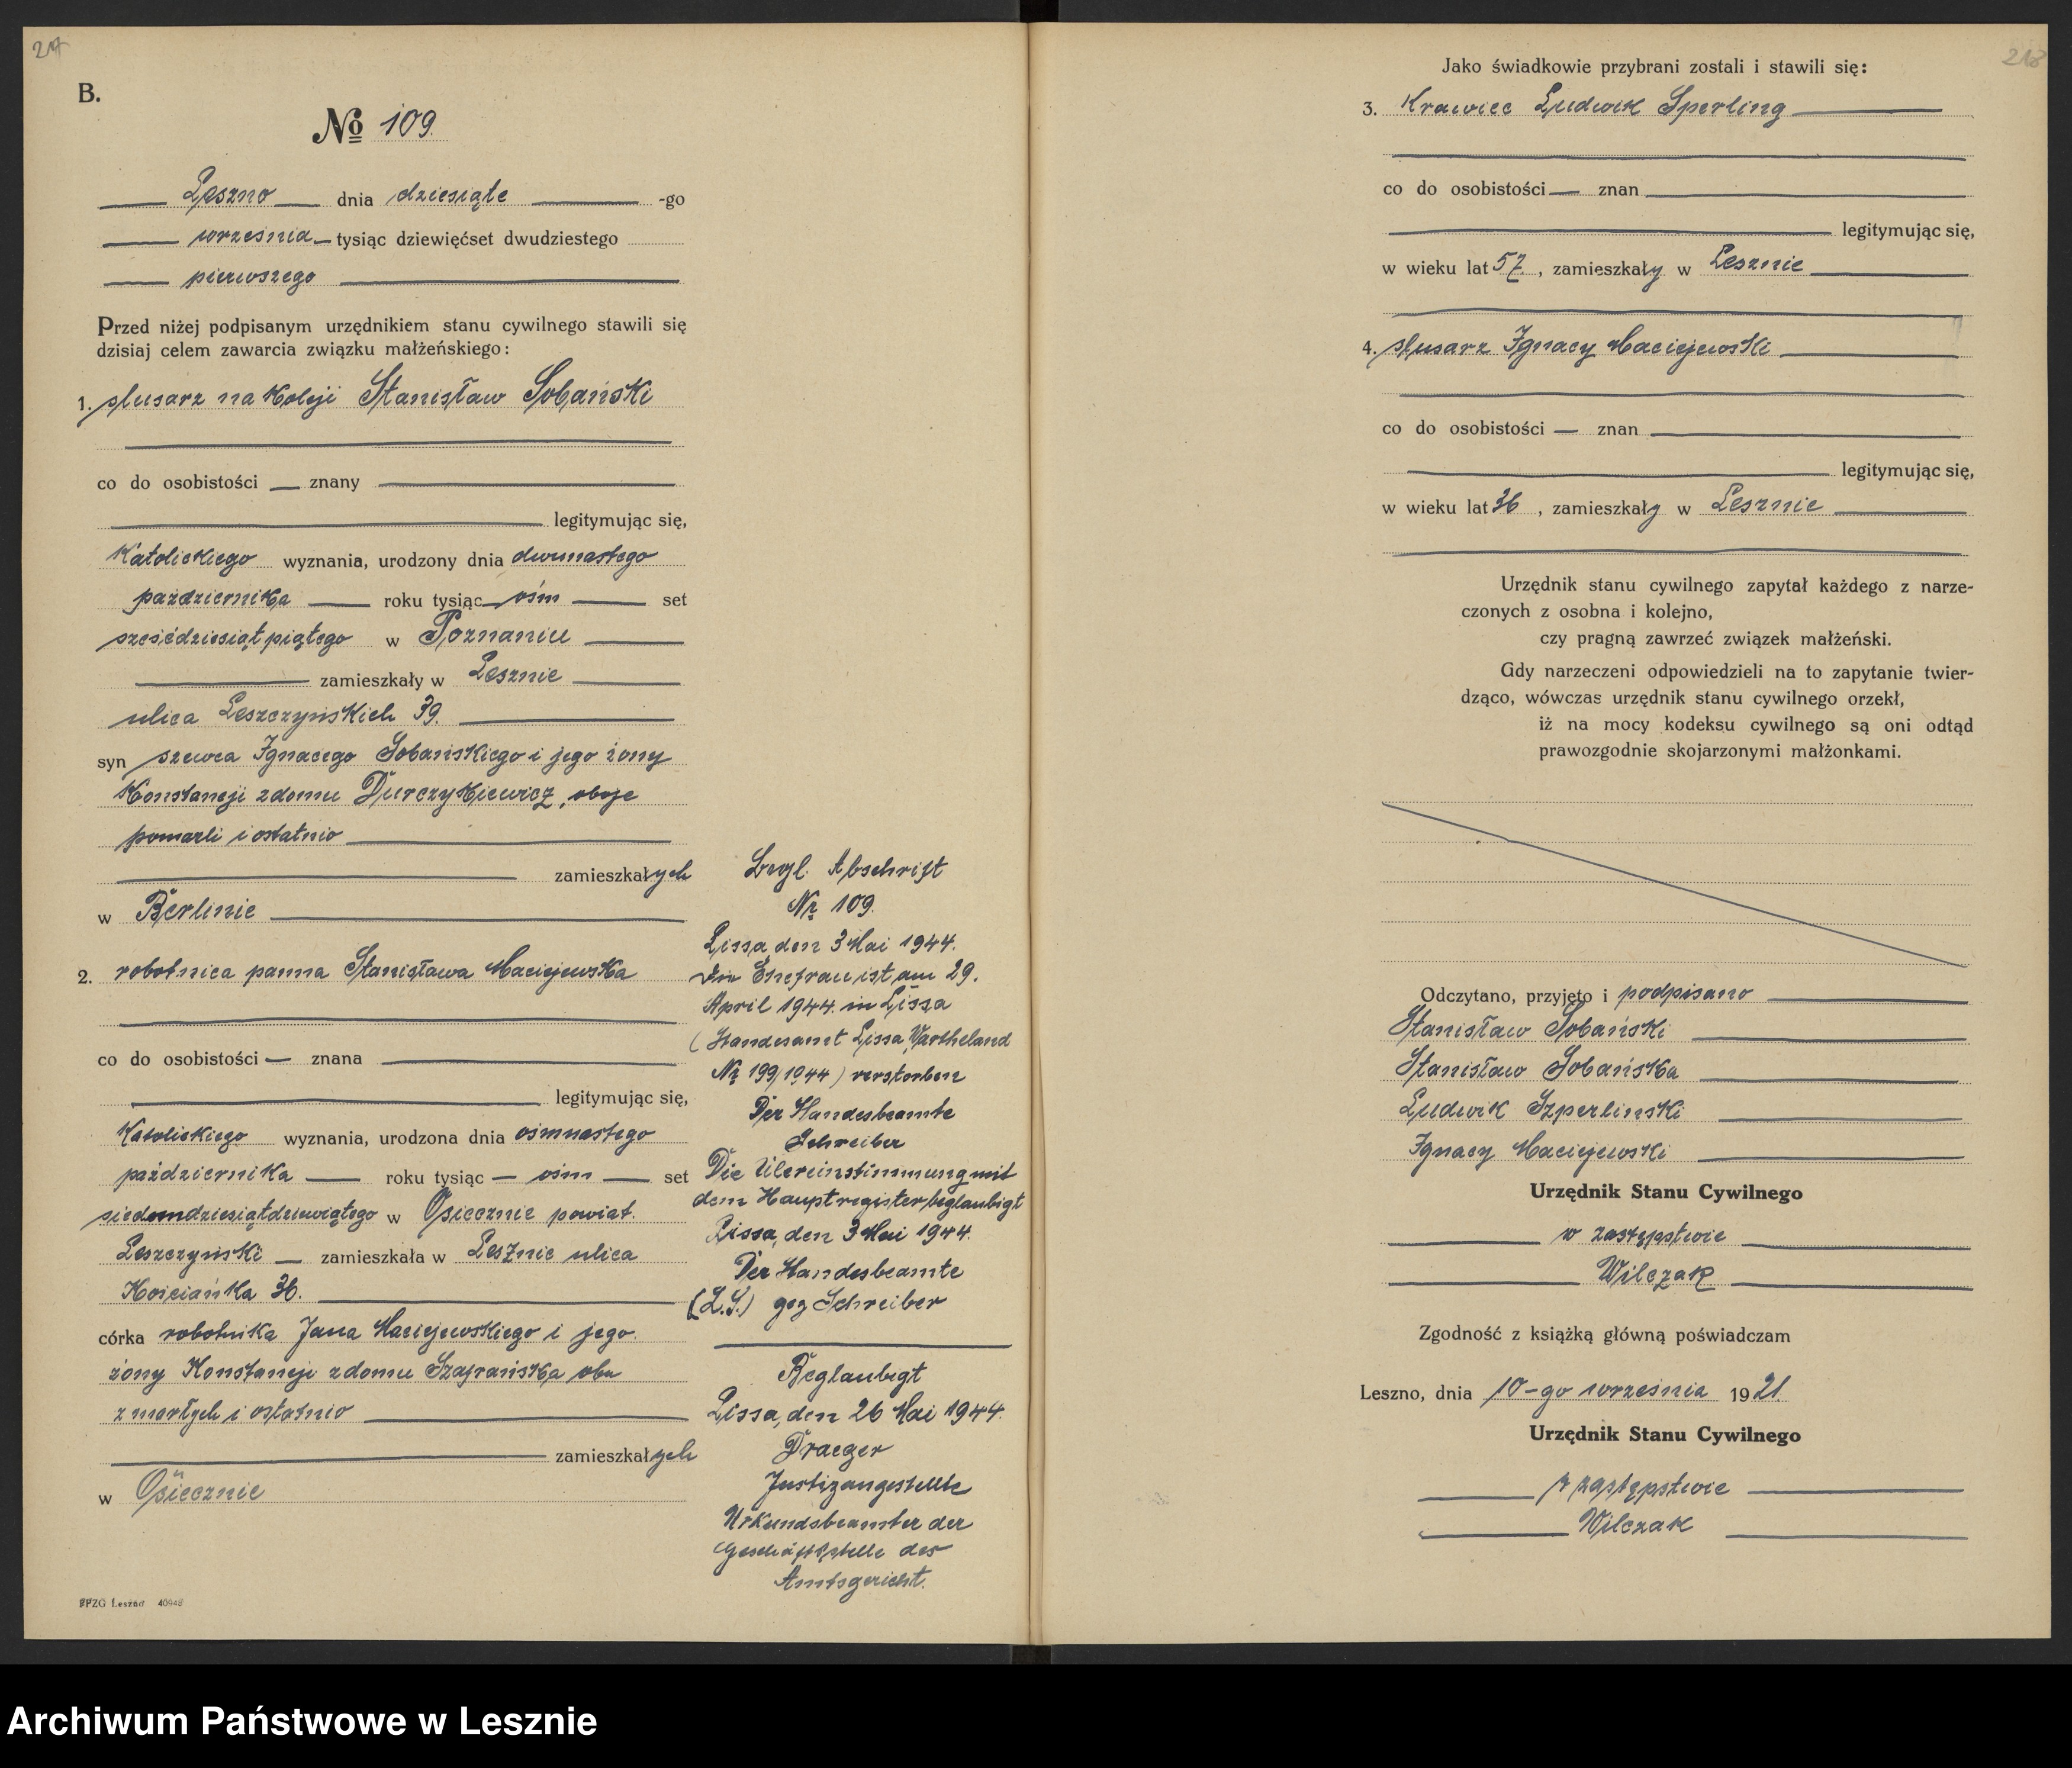 217
B.
No 109.
Leszno dnia dziesiąte -go
września tysiąc dziewięćset dwudziestego
pierwszego
Przed niżej podpisanym urzędnikiem stanu cywilnego stawili się
dzisiaj celem zawarcia związku małżeńskiego:
1. ślusarz na koleji Stanisław Sobański
co do osobistości znany
legitymując się,
Katolickiego wyznania, urodzony dnia dwunastego
października roku tysiąc ośm set
sześćdziesiąt piątego w Poznaniu
zamieszkały w Lesznie
ulica Leszczyńskich 39.
syn szewca Ignacego Sobańskiego i jego żony
Konstancji zdomu Durczykiewicz, oboje
pomarli i ostatnio
zamieszkałych
w Berlinie
2. robotnica panna Stanisława Maciejewska
co do osobistości znana
legitymując się,
Katolickiego wyznania, urodzona dnia ośmnastego
października roku tysiąc ośm set
siedemdziesiątdziewiątego w Osiecznie powiat.
Leszczyński zamieszkała w Lesznie ulica
Kościańka 36.
córka robotnika Jana Maciejewskiego i jego
żony Konstancji zdomu Szafrańska obu
zmarłych i ostatnio
zamieszkałych
w Osiecznie
FPZG Leszno 40948
Begl. Abschrift
Nr 109.
Lissa, den 3 Mai 1944.
Die Ehefrau ist am 29.
April 1944. in Lissa
(Standesamt Lissa, Wartheland
Nr 199/1944) verstorben
Der Standesbeamte
Schreiber
Die Übereinstimmung mit
dem Hauptregister beglaubigt
Lissa, den 3 Mai 1944.
Der Standesbeamte
(L.S.) gez Schreiber
Beglaubigt
Lissa, den 26 Mai 1944.
Draeger
Justizangestellte
Urkundsbeamter der
Geschäftsstelle des
Amtsgericht.
218
Jako świadkowie przybrani zostali i stawili się:
3. Krawiec Ludwik Sperling
co do osobistości znan
legitymując się,
w wieku lat 57, zamieszkały w Lesznie
4. ślusarz Ignacy Maciejewski
co do osobistości znan
legitymując się,
w wieku lat 36, zamieszkały w Lesznie
Urzędnik stanu cywilnego zapytał każdego z narze-
czonych z osobna i kolejno,
czy pragną zawrzeć związek małżeński.
Gdy narzeczeni odpowiedzieli na to zapytanie twier-
dząco, wówczas urzędnik stanu cywilnego orzekł,
iż na mocy kodeksu cywilnego są oni odtąd
prawozgodnie skojarzonymi małżonkami.
Odczytano, przyjęto i podpisano
Stanisław Sobański
Stanisław Sobańska
Ludwik Szperlinski
Ignacy Maciejewski
Urzędnik Stanu Cywilnego
w zastępstwie
Wilczak
Zgodność z książką główną poświadczam
Leszno, dnia 10-go września 1921.
Urzędnik Stanu Cywilnego
w zastępstwie
Wilczak
Archiwum Państwowe w Lesznie